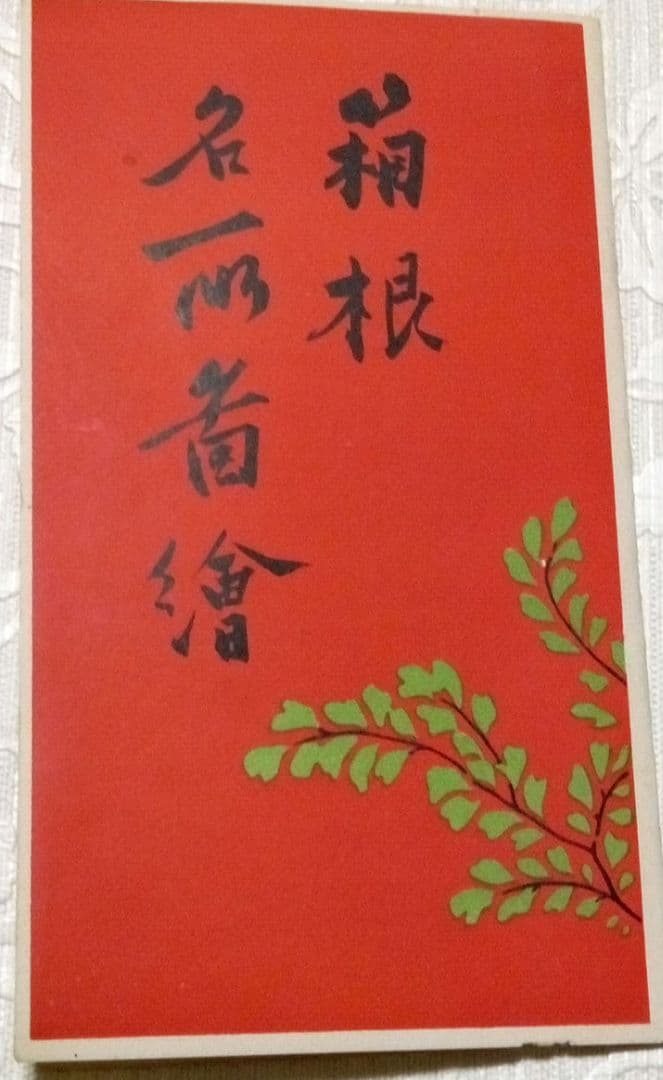 箱根
名所圖繪